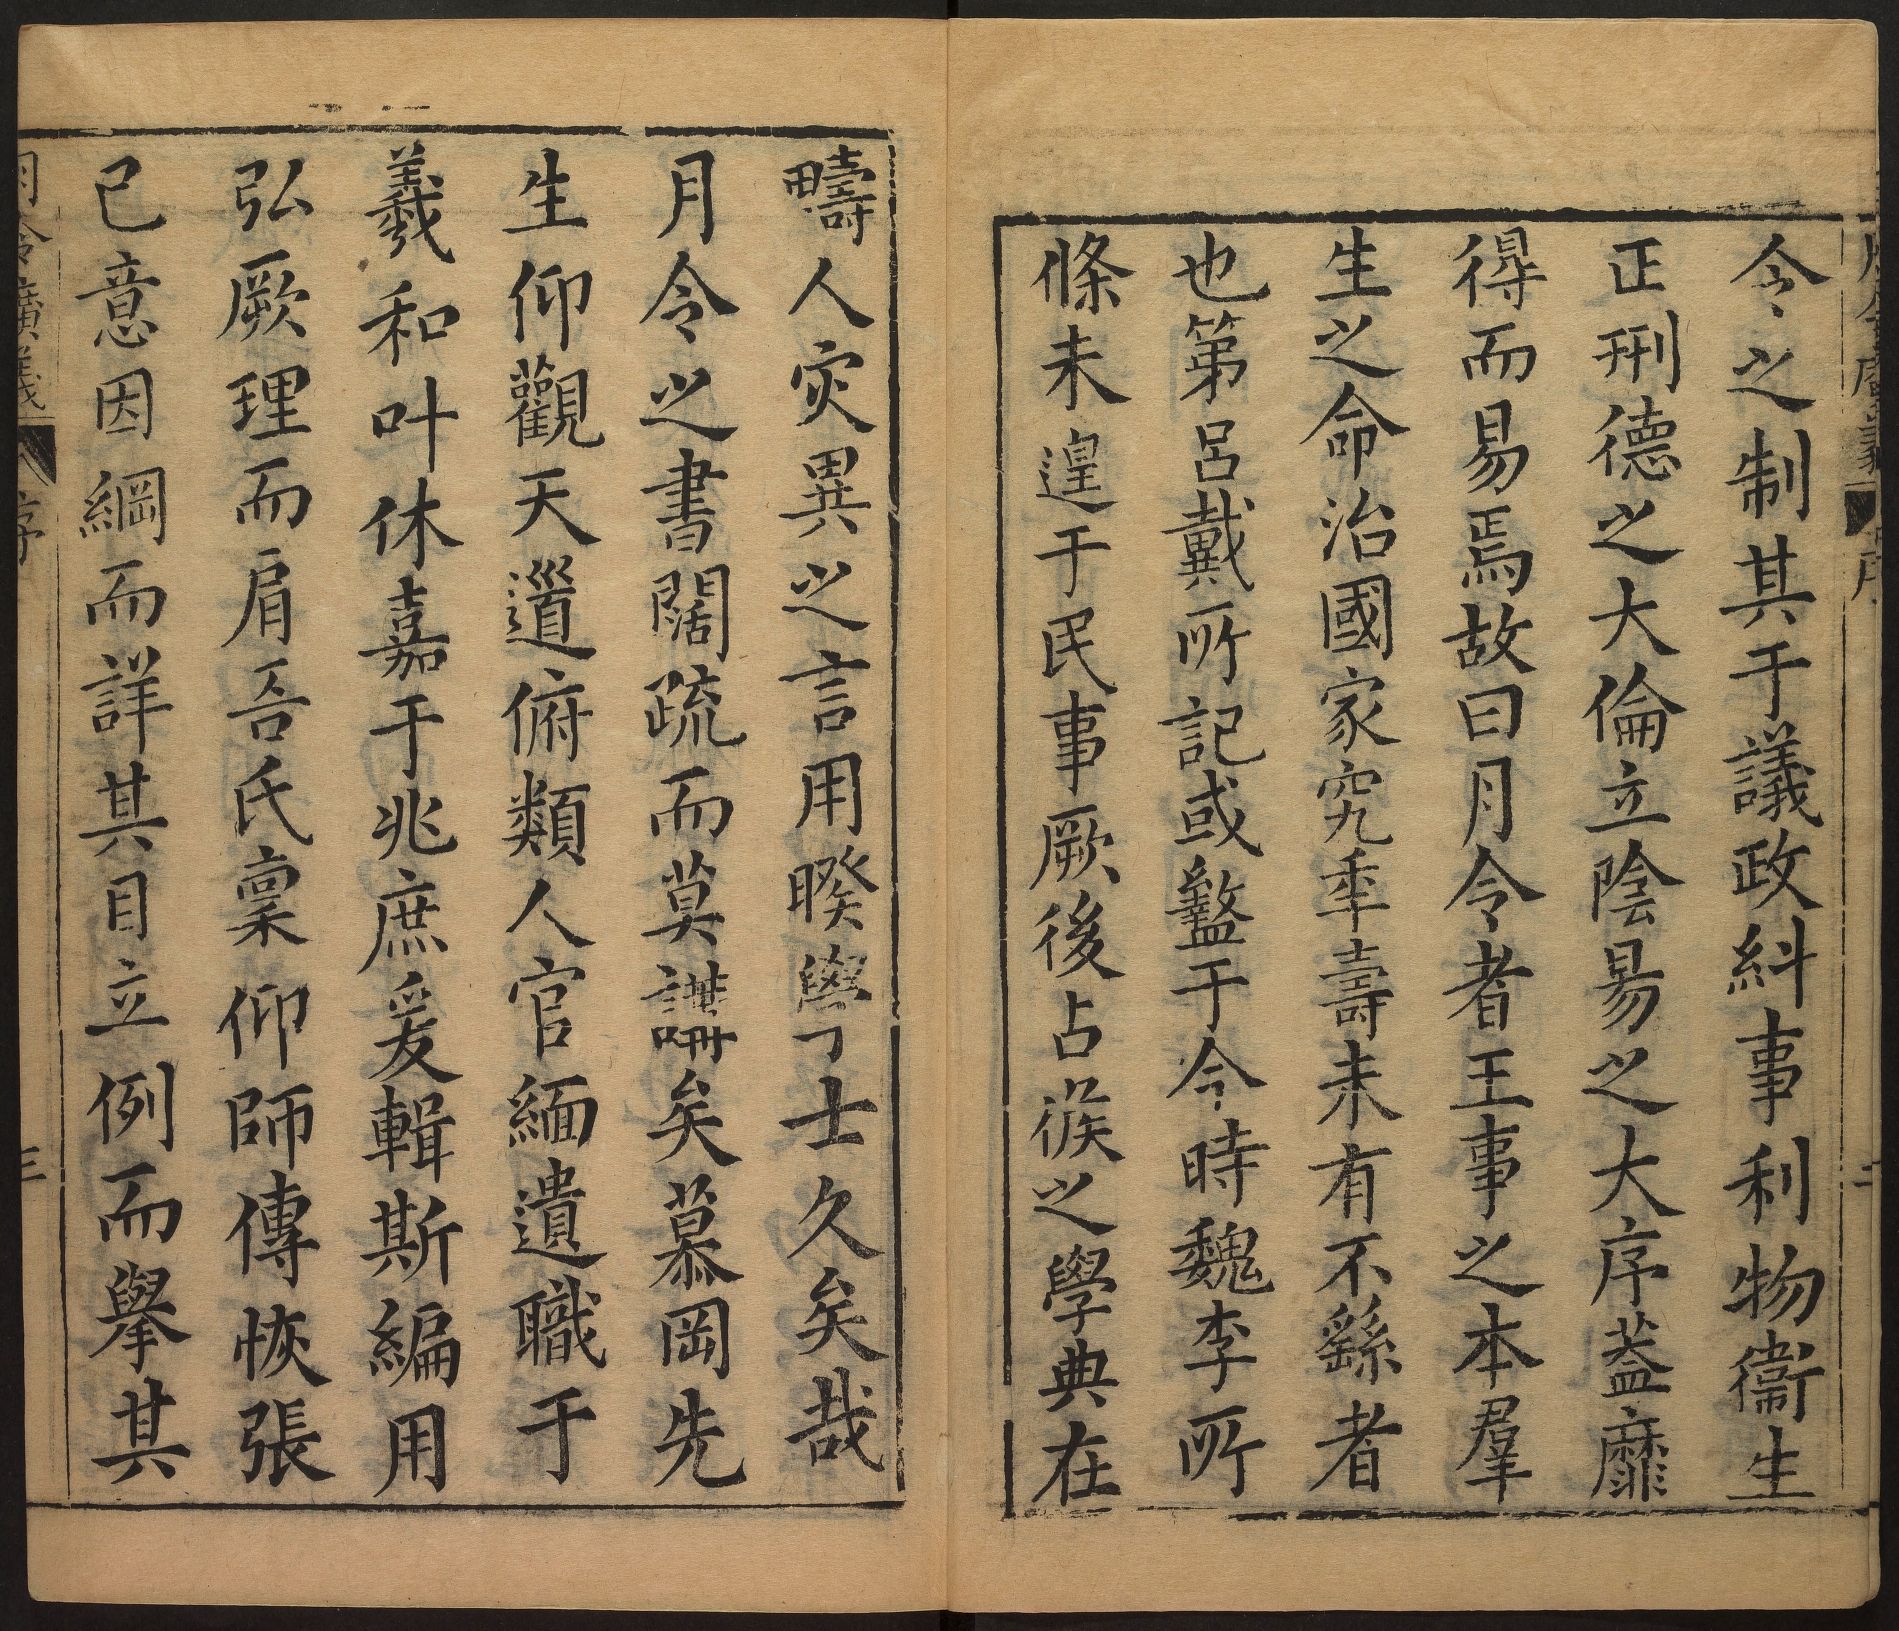 令之制其于議政糾事利物衞生
正刑德之大倫立陰昜之大序蓋靡
得而易焉故曰月令者王事之本羣
生之命治國家究秊壽未有不繇者
也第呂戴所記或盭于今時魏李所
條未遑于民事厥後占候之學典在
疇人灾異之言用暌學士久矣哉
月令之書闊疏而莫讲矣慕岡先
生仰觀天道俯類人官緬遺職于
羲和叶休嘉于兆庶爰輯斯編用
弘厥理而肩吾氏稟仰師傳恢張
已意因綱而詳其目立例而舉其
月令廣義 序 三